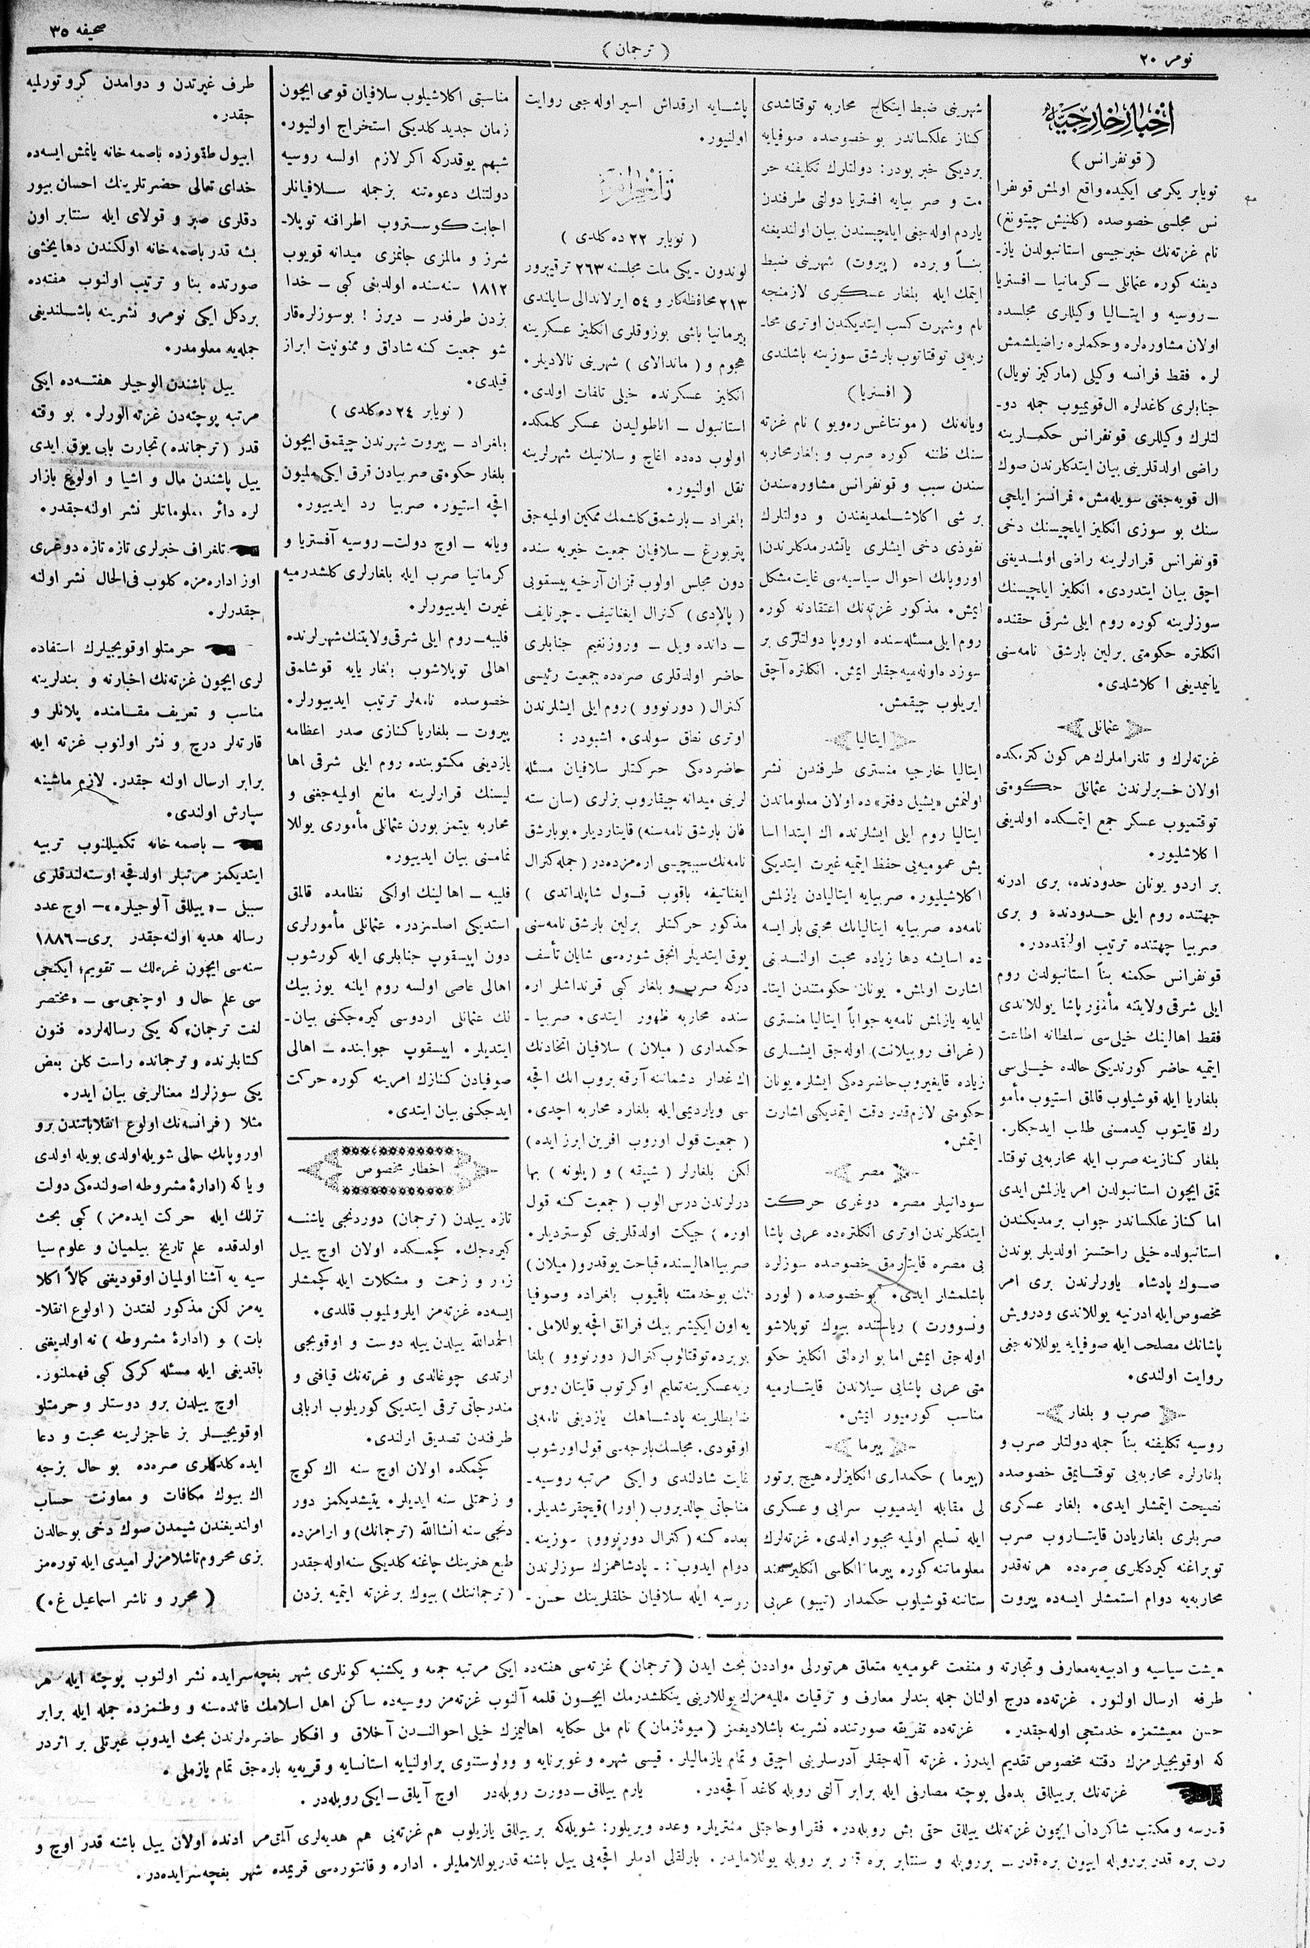 نومر ٢٠
( ترجمان )
صحیفه ٣٥
اخبار خارجیه
( قونفرانس )
نویابر یكرمی ایكیده واقع اولمش قونفرا
نس مجلسی خصوصده (كلنیش چیتونغ)
نام غزته‌نك خبرجیسی استانبولدن یاز-
دیغنه كوره عثمانلی – كرمانیا – افستریا
– روسیه و ایتالیا وكیللری مجلسده
اولان مشاوره‌لره و حكملره راضیلشمش
لر. فقط فرانسه وكیلی (ماركیز نویال)
جنابلری كاغدلره ال قویمیوب جمله دو-
لتلرك وكیللری قونفرانس حكملرینه
راضی اولدقلرینی بیان ایتدكارندن صوك
ال قویه‌جغی سویله‌مش. فرانسز ایلچی
سنك بو سوزی انكلیز ایلچیسنك دخی
قونفرانس قرارلرینه راضی اولمدیغی
اچق بیان ایتدردی. انكلیز ایلچیسنك
سوزلرینه كوره روم ایلی شرقی حقنده
انكلتره حكومتی برلین بارشق نامه‌سنی
یانمدیغی اكلاشلدی.
عثمانلی
غزته‌لرك و تلغراملرك هر كون كتورمكده
اولان خبرلرندن عثمانلی حكومتی
توقتمیوب عسكر جمع ایتمكده اولدیغی
اكلاشلیور.
بر اردو یونان حدودنده، بری ادرنه
جهتنده روم ایلی حدودنده و بری
صربیا جهتنده ترتیب اولنقده‌در.
قونفرانس حكمنه بناً استانبولدن روم
ایلی شرقی ولایتنه مأمور پاشا یوللاندی
فقط اهالینك خیلی‌سی سلطانه اطاعت
ایتمیه حاضر كورندیكی حالده خیلی‌سی
بلغاریا ایله قوشیلوب قالمق استیوب مأمو
رك قایتوب كیدمسنی طلب ایدجكلر.
بلغار كنازینه صرب ایله محاربه‌یی توقتا-
تمق ایچون استانبولدن امر یازلمش ایدی
اما كناز علكساندر جواب برمدیكندن
استانبولده خیلی راحتسز اولدیلر بوندن
صوك پادشاه یاورلرندن بری امر
مخصوص ایله ادرنیه یوللاندی و درویش
پاشانك مصلحت ایله صوفیایه یوللانه‌جغی
روایت اولندی.
صرب و بلغار
روسیه تكلیفنه بناً جمله دولتلر صرب و
بلغارلره محاربه‌یی توقتایمق خصوصده
نصیحت ایتمشلر ایدی. بلغار عسكری
صربلری بلغاریادن قایتاروب صرب
توبراغنه كیردكلری صره‌ده هر نه‌قدر
محاربه‌یه دوام استمشلر ایسه‌ده پیروت
شهرینی ضبط ایتكاج محاربه توقتاشدی
كناز علكساندر بو خصوصده صوفیایه
بردیكی خبر بودر: دولتلرك تكلیفنه حر
مت و صربیایه افستریا دولتی طرفندن
یاردم اوله‌جغی ایلچیسندن بیان اولندیغنه
بناً و برده (پیروت) شهرینی ضبط
ایتمك ایله بلغار عسكری لازمنجه
نام و شهرت كسب ایتدیكندن اوتری محا-
ربه‌یی توقتاتوب بارشق سوزینه باشلندی
( افستریا )
ویانه‌نك (مونتاغس ره‌ویو) نام غزته
سنك ظننه كوره صرب و بلغار محاربه
سندن سبب و قونفرانس مشاوره‌سندن
بر شی اكلاشلمدیغندن و دولتلرك
نفوذی دخی ایشلری یاتشدرمدكلرندن
اوروپانك احوال سیاسیه‌سی غایت مشكل
ایمش. مذكور غزته‌نك اعتقادنه كوره
روم ایلی مسئله‌سنده اوروپا دولتلری بر
سوزده اوله‌میه‌جقلر ایمش. انكلتره آچق
ایریلوب چیقمش.
ایتالیا
ایتالیا خارجیا منستری طرفندن نشر
اولنمش «یشیل دفتر» ده اولان معلوماتدن
ایتالیا روم ایلی ایشلرنده اك ابتدا اسا
یش عمومیه‌یی حفظ ایتمیه غیرت ایتدیكی
اكلاشیلیور. صربیایه ایتالیادن یازلمش
نامه‌ده صربیایه ایتالیانك محبتی بار ایسه
ده اسایشه دها زیاده محبت اولندیغی
اشارت اولمش. یونان حكومتندن ایتا-
لیایه یازلمش نامه‌یه جواباً ایتالیا منستری
(غراف روبیلانت) اوله‌جق ایشلری
زیاده قایغیروب حاضرده‌كی ایشلره یونان
حكومتی لازم قدر دقت ایتمدیكنی اشارت
ایتمش.
مصر
سودانیلر مصره دوغری حركت
ایتدكلرندن اوتری انكلتره‌ده عربی پاشا
یی مصره قایتارمق خصوصده سوزلره
باشلمشلر ایدی. بو خصوصده (لورد
ونسوورت) ریاستنده بیوك توپلاشو
اوله‌جق ایمش اما بو ارالق انكلیز حكو
متی عربی پاشایی سیلاندن قایتارمیه
مناسب كورمیور ایمش.
پیرما
(پیرما) حكمداری انكلیزلره هیچ برتور
لی مقابله ایدمیوب سرایی و عسكری
ایله تسلیم اولمیه مجبور اولدی. غزته‌لرك
معلوماتنه كوره پیرما الكاسی انكلیز هند
ستاننه قوشیلوب حكمدار (تیبو) عربی
پاشایه ارقداش اسیر اوله‌جغی روایت
اولنیور.
تلغرافلر
( نویابر ٢٢ ده كلدی )
لوندون - یكی ملت مجلسنه ٢٦٣ ترقیپرور
٢١٣ محافظه‌كار و ٥٤ ایرلاندالی سایلندی
پیرمانیا باشی بوزوقلری انكلیز عسكرینه
هجوم و (ماندالای) شهرینی تالادیلر.
انكلیز عسكرنده خیلی تلفات اولدی.
استانبول – اناطولیدن عسكر كلمكده
اولوب ده‌ده اغاچ و سلانیك شهرلرینه
نقل اولنیور.
بلغراد – بارشمق كاشمك ممكین اولمیه‌جق
پتربورغ – سلافیان جمعیت خیریه سنده
دون مجلس اولوب قزان آرخیه پیسقوپی
(پاللادی) كنرال ایغناتیف - چرنایف
– دانده ویل – وروزنغیم جنابلری
حاضر اولدقلری صره‌ده جمعیت رئیسی
كنرال (دورنووو) روم ایلی ایشلرندن
اوتری نطق سولدی. اشبودر :
حاضرده‌كی حركتلر سلافیان مسئله
لرینی میدانه چیقاروب بزلری (سان سته
فان بارشق نامه‌سنه) قایتاردیلر. بو بارشق
نامه‌نك سبیچیسی اره‌مزده‌در (جمله كنرال
ایغناتیفه باقوب قول شاپلداتدی)
مذكور حركتلر برلین بارشق نامه‌سنی
یوق ایتدیلر انجق شوره‌سی شایان تأسف
دركه صرب و بلغار كبی قرنداشلر ار‌ه
سنده محاربه ظهور ایتدی. صربیا -
حكمداری (میلان) سلافیان اتخادنك
اك غدار دشماننه آرقه بروب انك اقچه
سی و یاردیمی ایله بلغاره محاربه اچدی.
(جمعیت قول اوروب افرین ابراز ایده)
لكن بلغارلر (شیپقه) و (پلونه) بها
درلرندن درس الوب (جمعیت كنه قول
اوره) جیكت اولدقلرینی كوستردیلر.
صربیا اهالیسنده قباحت یوقدرو (میلان)
یه اون ایكیشر بیك فرانق اقچه یوللاملی.
بو یرده توقتالوب كنرال (دورنووو) بلغا
ریه عسكرینه تعلیم اوكرتوب قایتان روس
ضابطلرینه پادشاهك یازدیغی نامه‌یی
اوقودی. مجلسك بارجه‌سی قول اورشوب
غایت شادلندی و ایكی مرتبه روسیه-
مناجاتی چالدیروب (اورا) قیچقرشدیلر.
بعده كنه (كنرال دورنووو) سوزینه-
دوام ایدوب : - پادشاهمزك سوزلرندن
روسیه ایله سلافیان خلقلرینك حسن -
مناسبتی اكلاشیلوب سلافیان قومی ایچون
زمان جدید كلدیكی استخراج اولنیور.
شبهم یوقدركه اكر لازم اولسه روسیه
دولتنك دعوه‌تنه بزجمله سلافیانلر
اجابت كوستروب اطرافنه توپلا-
شرز و مالمزی جانمزی میدانه قویوب
١٨١٢ سنه‌سنده اولدیغی كبی – خدا
بزدن طرفدر – دیرز ! بو سوزلره‌قار
شو جمعیت كنه شاداق و ممنونیت ابراز
قیلدی.
( نویابر ٢٤ ده كلدی )
بلغراد – پیروت شهرندن چیقمق ایچون
بلغار حكومتی صربیادن قرق ایكی ملیون
اقچه استیور. صربیا رد ایدییور.
ویانه – اوچ دولت – روسیه آفستریا و
كرمانیا صرب ایله بلغارلری كلشدرمیه
غیرت ایدییورلر.
فلیبه – روم ایلی شرقی ولایتنك شهرلرنده
اهالی توپلاشوب بلغاریایه قوشلمق
خصوصده نامه‌لر ترتیب ایدییورلر.
پیروت – بلغاریا كنازی صدر اعظامه
یازدیغی مكتوبنده روم ایلی شرقی اها
لیسنك قرارلرینه مانع اولمیه‌جغنی و
محاربه بیتمز بورن عثمانلی مأموری یوللا
نمامسنی بیان ایدییور.
فلیبه – اهالینك اولكی نظامده قالمق
استدیكی اصلسزدر. عثمانلی مأمورلری
دون اپیسقوپ جنابلری ایله كورشوب
اهالی عاصی اولسه روم ایلنه یوز بیك
لك عثمانلی اردوسی كیره‌جكنی بیان-
ایتدیلر. اپیسقوپ جوابنده – اهالی
صوفیادن كنازك امرینه كوره حركت
ایدجكنی بیان ایتدی.
اخطار مخصوص
تازه ییلدن (ترجمان) دوردنجی یاشنه
كیره‌جك. كچمكده اولان اوچ ییل
زور و زحمت و مشكلات ایله كچمشلر
ایسه‌ده غزته‌مز ایلرولمیوب قالمدی.
الحمدالله ییلدن ییله دوست و اوقویجی
ارتدی چوغالدی و غزته‌نك قیافتی و
مندرجاتی ترقی ایتدیكی كوریلوب اربابی
طرفندن تصدیق ارلندی.
كچمكده اولان اوچ سنه اك كوچ
و زحمتلی سنه ایدیلر. یتیشدیكمز دور
دنجی سنه انشاالله (ترجمانك) و ارامزده
طبع هنرینك چاغنه كلدیكی سنه اوله‌جقدر
(ترجماننك) بیوك بر غزته ایتمیه بزدن
طرف غیرتدن و دوامدن كرو تورلمیه
جقدر.
اییول طقوزده باصمه خانه یانمش ایسه‌ده
خدای تعالی حضرتلرینك احسان بیور
دقلری صبر و قولای ایله سنتابر اون
بشه قدر باصمه خانه اولكندن دها یخشی
صورتده بنا و ترتیب اولنوب هفته‌ده
بردكل ایكی نومرو نشرینه باشلندیغی
جمله‌یه معلومدر.
ییل باشندن الوجیلر هفته‌ده ایكی
مرتبه پوچته‌دن غزته الورلر. بو وقته
قدر (ترجمانده) تجارت بابی یوق ایدی
ییل باشندن مال و اشیا و اولوغ بازار
لره دائر معلوماتلر نشر اولنه‌جقدر.
تلغراف خبرلری تازه تازه دوغری
اوز اداره‌مزه كلوب فی‌الحال نشر اولنه
جقدرلر.
حرمتلو اوقویجیلرك استفاده
لری ایچون غزته‌نك اخبارنه و بندلرینه
مناسب و تعریف مقامنده پلانلر و
قارته‌لر درج و نشر اولنوب غزته ایله
برابر ارسال اولنه جقدر. لازم ماشینه
سپارش اولندی.
– باصمه خانه تكمیللنوب تربیه
ایتدیكمز مرتبلر اولدقچه اوسته‌لندقلری
سببلی – «ییللق آلوجیلره» – اوچ عدد
رساله هدیه اولنه‌جقدر بری – ١٨٨٦
سنه‌سی ایچون غزه‌لك – تقویم؛ ایكنجی
سی علم حال و اوچنجی‌سی – «مختصر
لغت ترجمان» كه یكی رساله‌لرده فنون
كتابلرنده و ترجمانده راست كلن بعض
یكی سوزلرك معنالرینی بیان ایدر.
مثلا (فرانسه‌نك اولوغ انقلاباتندن برو
اوروپانك حالی شویله اولدی بویله اولدی
و یا كه (ادارهٔ مشروطه اصولنده‌كی دولت
تزلك ایله حركت ایده‌مز) كبی بحث
اولدقده علم تاریخ بیلمیان و علوم سیا
سیه یه آشنا اولمیان اوقودیغی كمالاً اكلا
یه‌مز لكن مذكور لغتدن (اولوغ انقلا-
بات) و (ادارهٔ مشروطه) نه اولدیغنی
باقدیغی ایله مسئله كركی كبی فهملنور.
اوچ ییلدن برو دوستلر و حرمتلو
اوقویجیلر بز عاجزلرینه محبت و دعا
ایده كلدكلری صره‌ده بو حال بزجه
اك بیوك مكافات و معاونت حساب
اولندیغندن شیمدن صوك دخی بو حالدن
بزی محروم تاشلامزلر امیدی ایله توره‌مز
( محرر و ناشر اسماعیل غ. )
معیشت سیاسیه و ادبیه‌یه معارف و تجارته و منفعت عمومیه‌یه متعلق هرتورلی مواددن بحث ایدن (ترجمان) غزته‌سی هفته‌ده ایكی مرتبه جمعه و یكشنبه كونلری شهر بغچه‌سرایده نشر اولنوب پوچته ایله هر
طرفه ارسال اولنور. غزته‌ده درج اولنان جمله بندلر معارف و ترقیات ملیه‌مزك یوللارینی ینكلشدرمك ایچون قلمه آلنوب غزته‌مز روسیه‌ده ساكن اهل اسلامك فائده‌سنه و وطنمزده جمله ایله برابر
حسن معیشتمزه خدمتچی اوله‌جقدر. غزته‌ده تفریقه صورتنده نشرینه باشلادیغمز (میونزمان) نام ملی حكایه اهالیمزك خیلی احوالندن آخلاق و افكار حاضره‌لرندن بحث ایدوب غیرتلی بر اثردر
كه اوقویجیلرمزك دقتنه مخصوص تقدیم ایدرز. غزته آله‌جقلر آدرسلرینی اچیق و تمام یازمالیلر. قیسی شهره و غوبرنایه و وولوستنوی پراولنیایه استانسایه و قریه‌یه باره‌جق تمام یازملی.
غزته‌نك بر ییللق بدلی پوچته مصارفی ایله برابر آلتی روبله كاغد آقچه‌در. یارم ییللق – دورت روبله‌در اوچ آیلق – ایكی روبله‌در.
مدرسه و مكتب شاكردانی ایچون غزته‌نك ییللق حقی بش روبله‌در. فقرا و حاجتلی مشتریلره وعده ویریلور: شویله‌كه بر ییللق یازیلوب هم غزته‌یی هم هدیه‌لری آلمق‌مراد ایدنده اولان ییل باشنه قدر اوچ و
قدر بر روبله یوللامالیدر. بارلقلی ادملر اقچه‌یی ییل باشنه قدر یوللاملیلر. اداره و قانتوره‌سی قریمده شهر بغچه‌سرایده‌در.